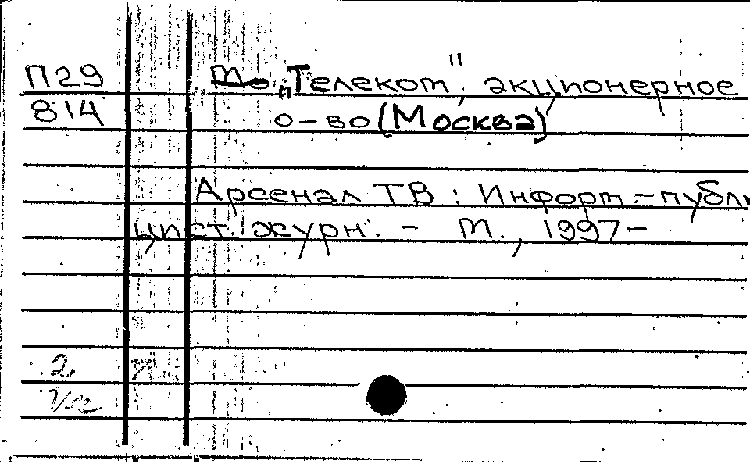 П29
814
„Телеком", акционерное
о-во (Москва)
Арсенал ТВ : Информ.-публи
цист. журн. - М., 1997-
2